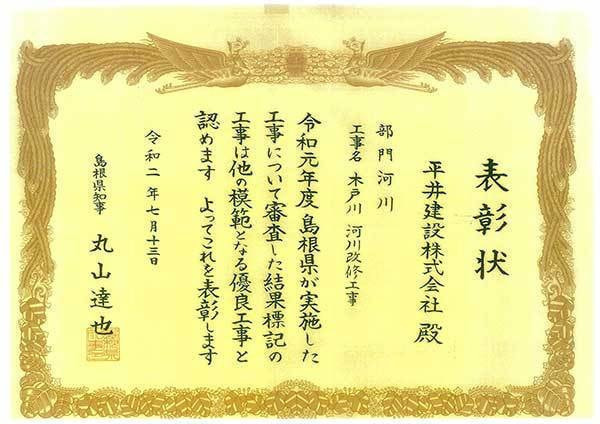 表彰状
平井建設株式会社 殿
部門 河川
工事名 木戸川 河川改修工事
令和元年度 島根県が実施した
工事について審査した結果標記の
工事は他の模範となる優良工事と
認めます よってこれを表彰します
令和二年七月十三日
島根県知事 丸山達也